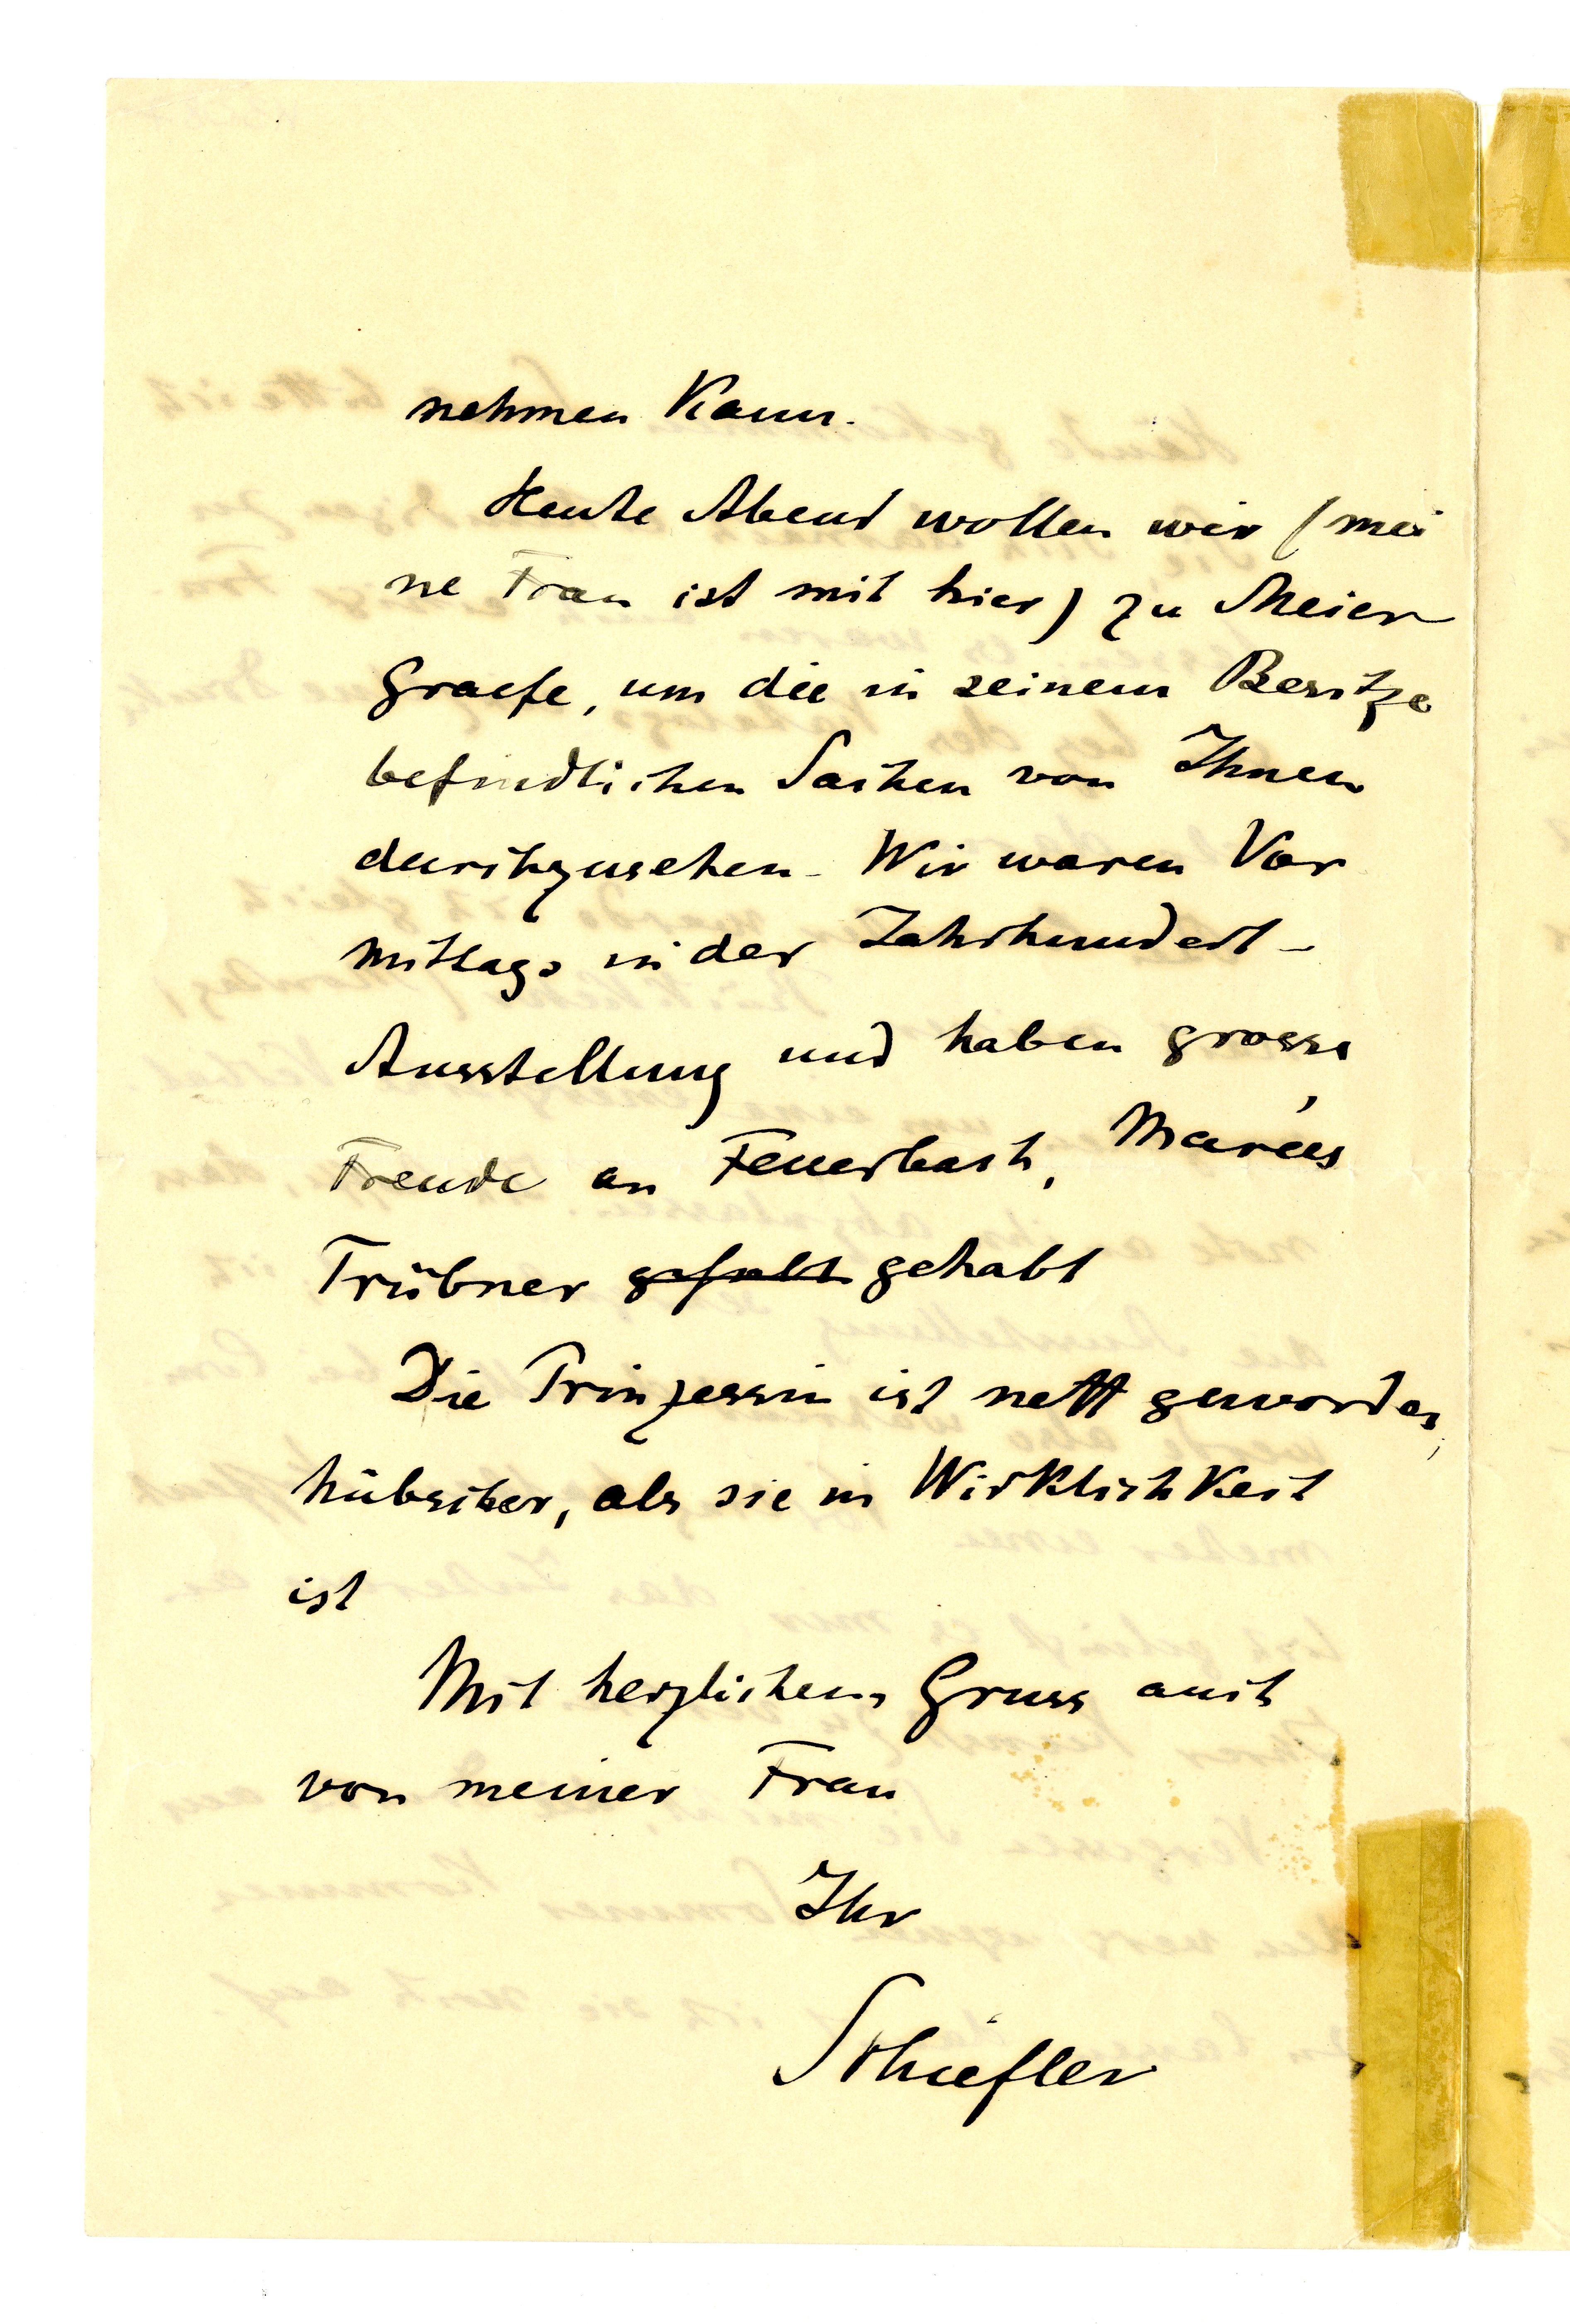 nehmen Kann.
Heute Abend wollen wir (mei
ne Frau ist mit hier) zu Meier
Graefe, um die in seinem Besitze
befindlichen Sachen von Ihnen
durchzusehen. Wir waren Vor
mittags in der Jahrhundert-
Ausstellung und haben grosse
Freude an Feuerbach, Marées,
Trübner gehabt
Die Prinzessin ist nett geworden,
hübscher, als sie in Wirklichkeit
ist
Mit herzlichem Gruss auch
von meiner Frau
Ihr
Schiefler